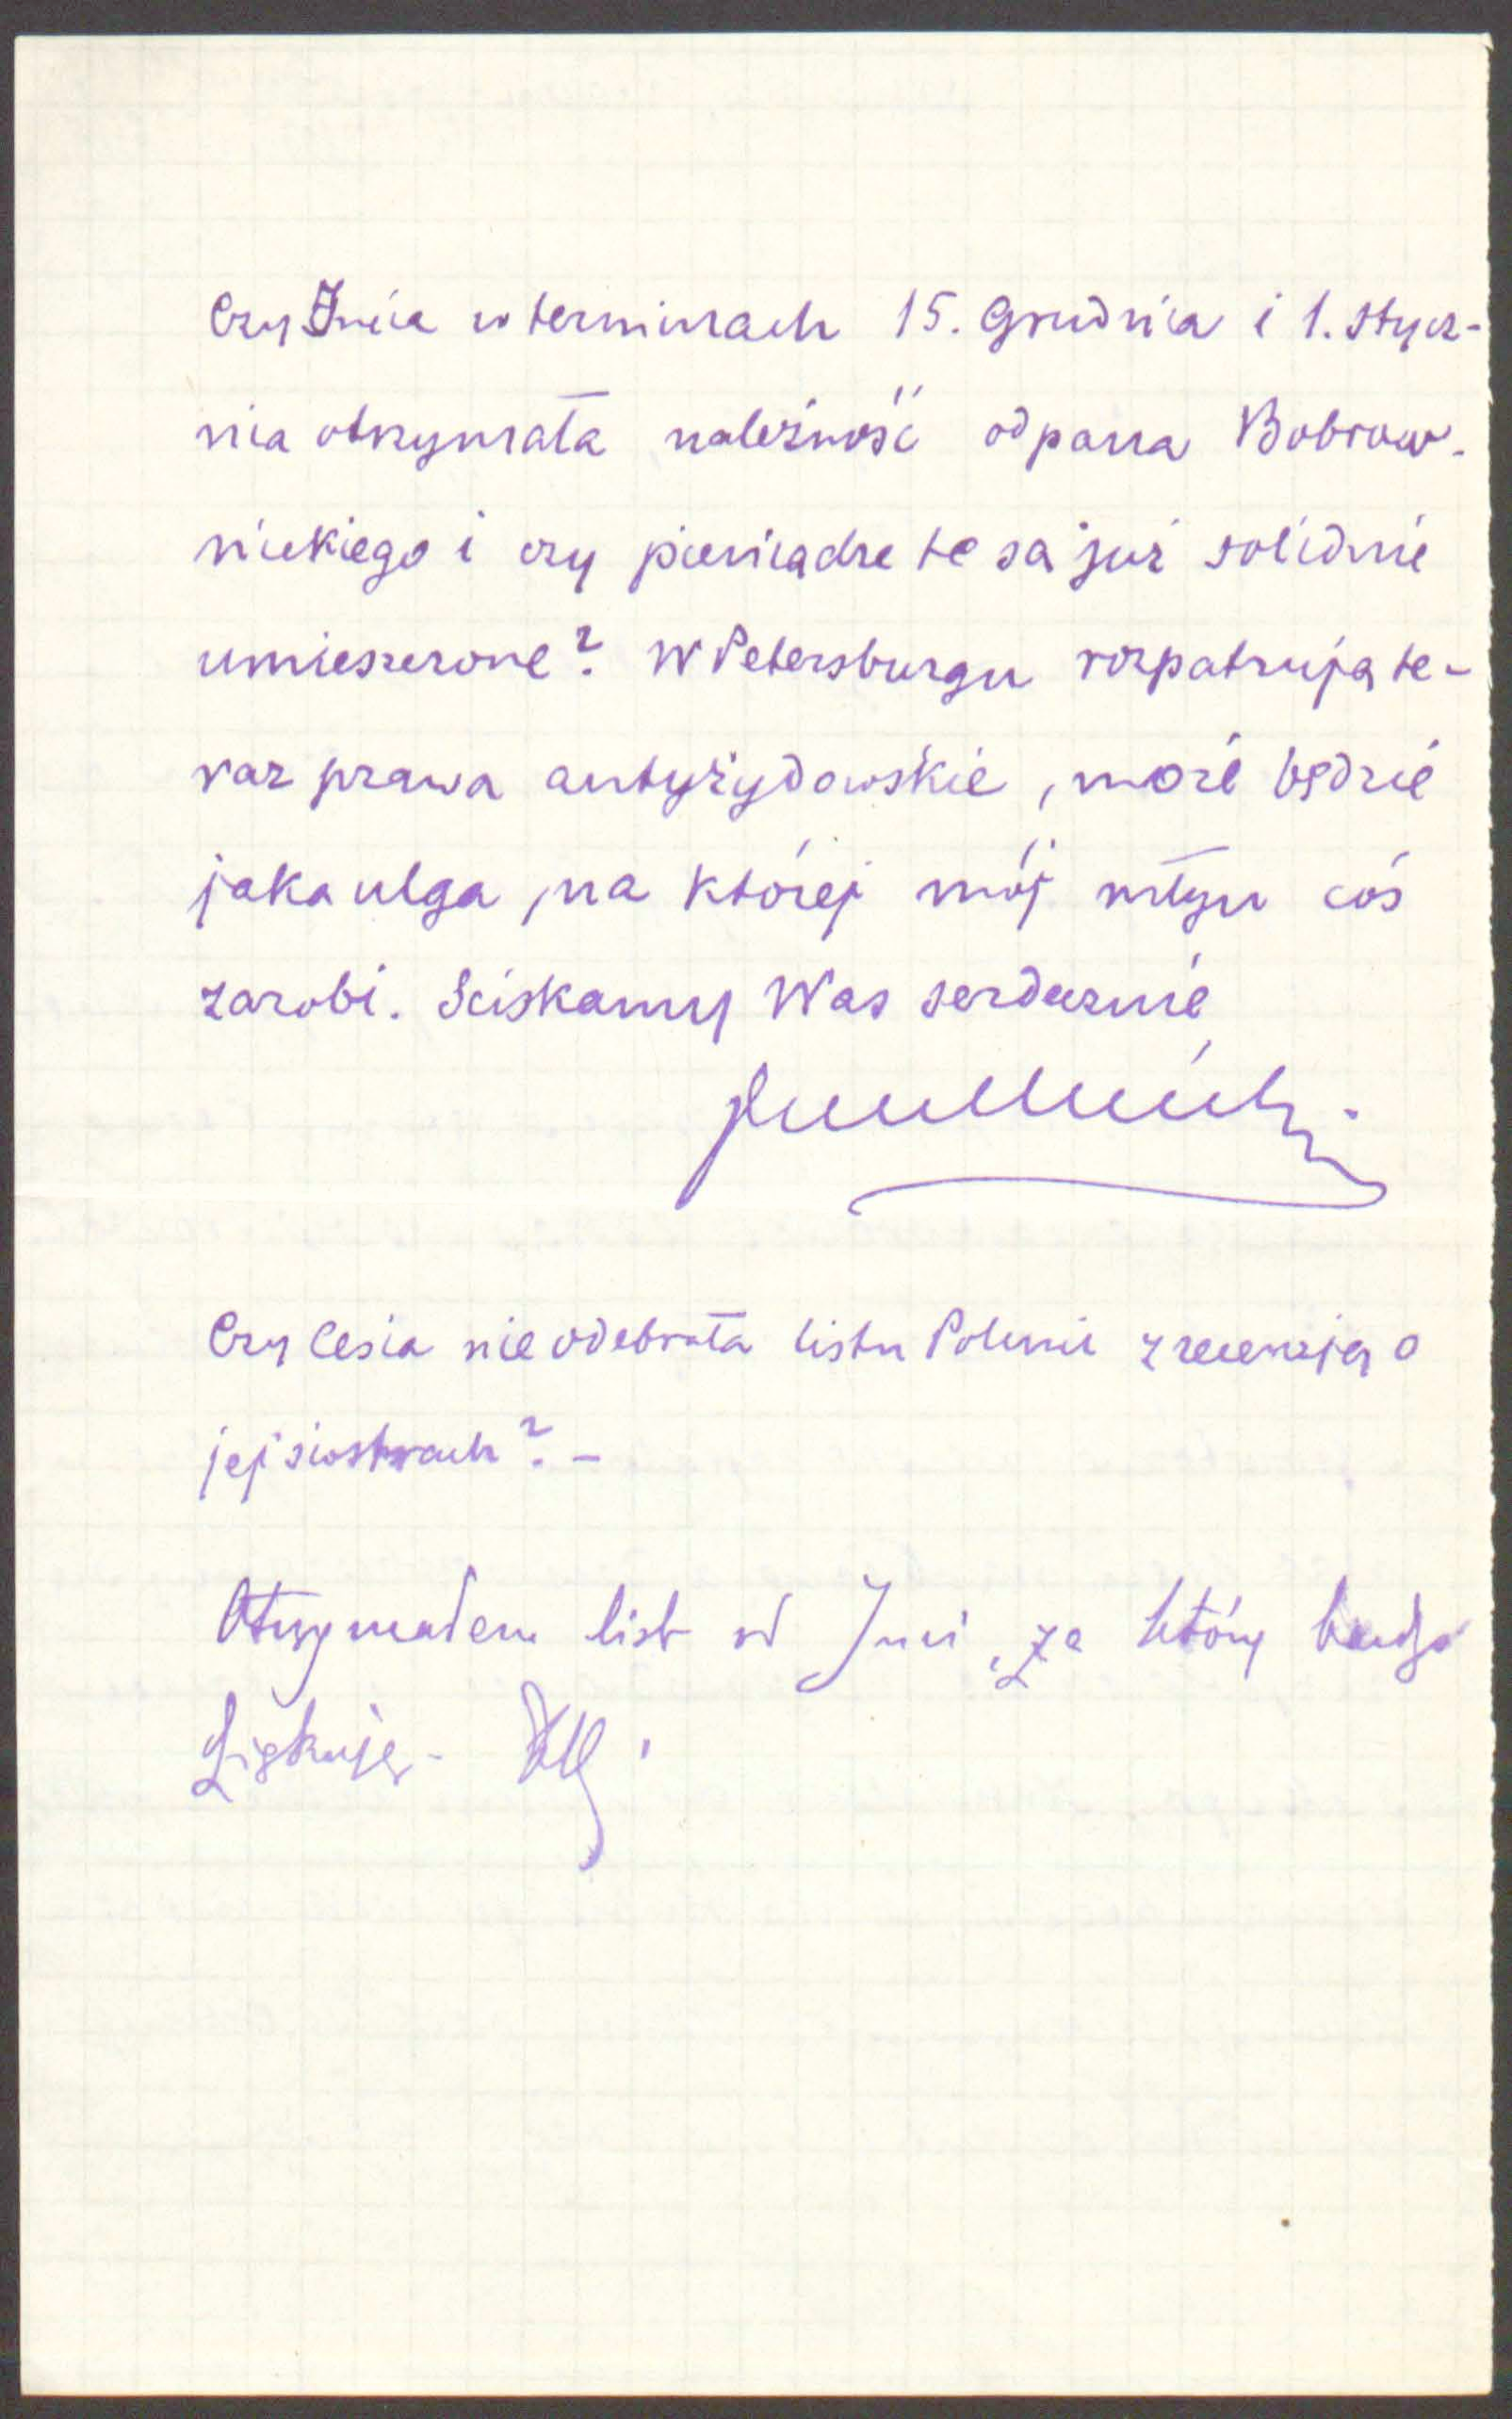 Czy Inia w terminach 15. Grudnia i 1. Stycz-
nia otrzymała należność od pana Bobrow-
nickiego i czy pieniądze te są już solidnie
umieszczone? W Petersburgu rozpatrują te-
raz prawa antyżydowskie, może będzie
jaka ulga, na której mój młyn coś
zarobi. Ściskamy Was serdecznie
Czy Cesia nie odebrała listu Polci z recenzją o
jej siostrach? –
Otrzymałem list od Ini, za który bardzo
dziękuję –